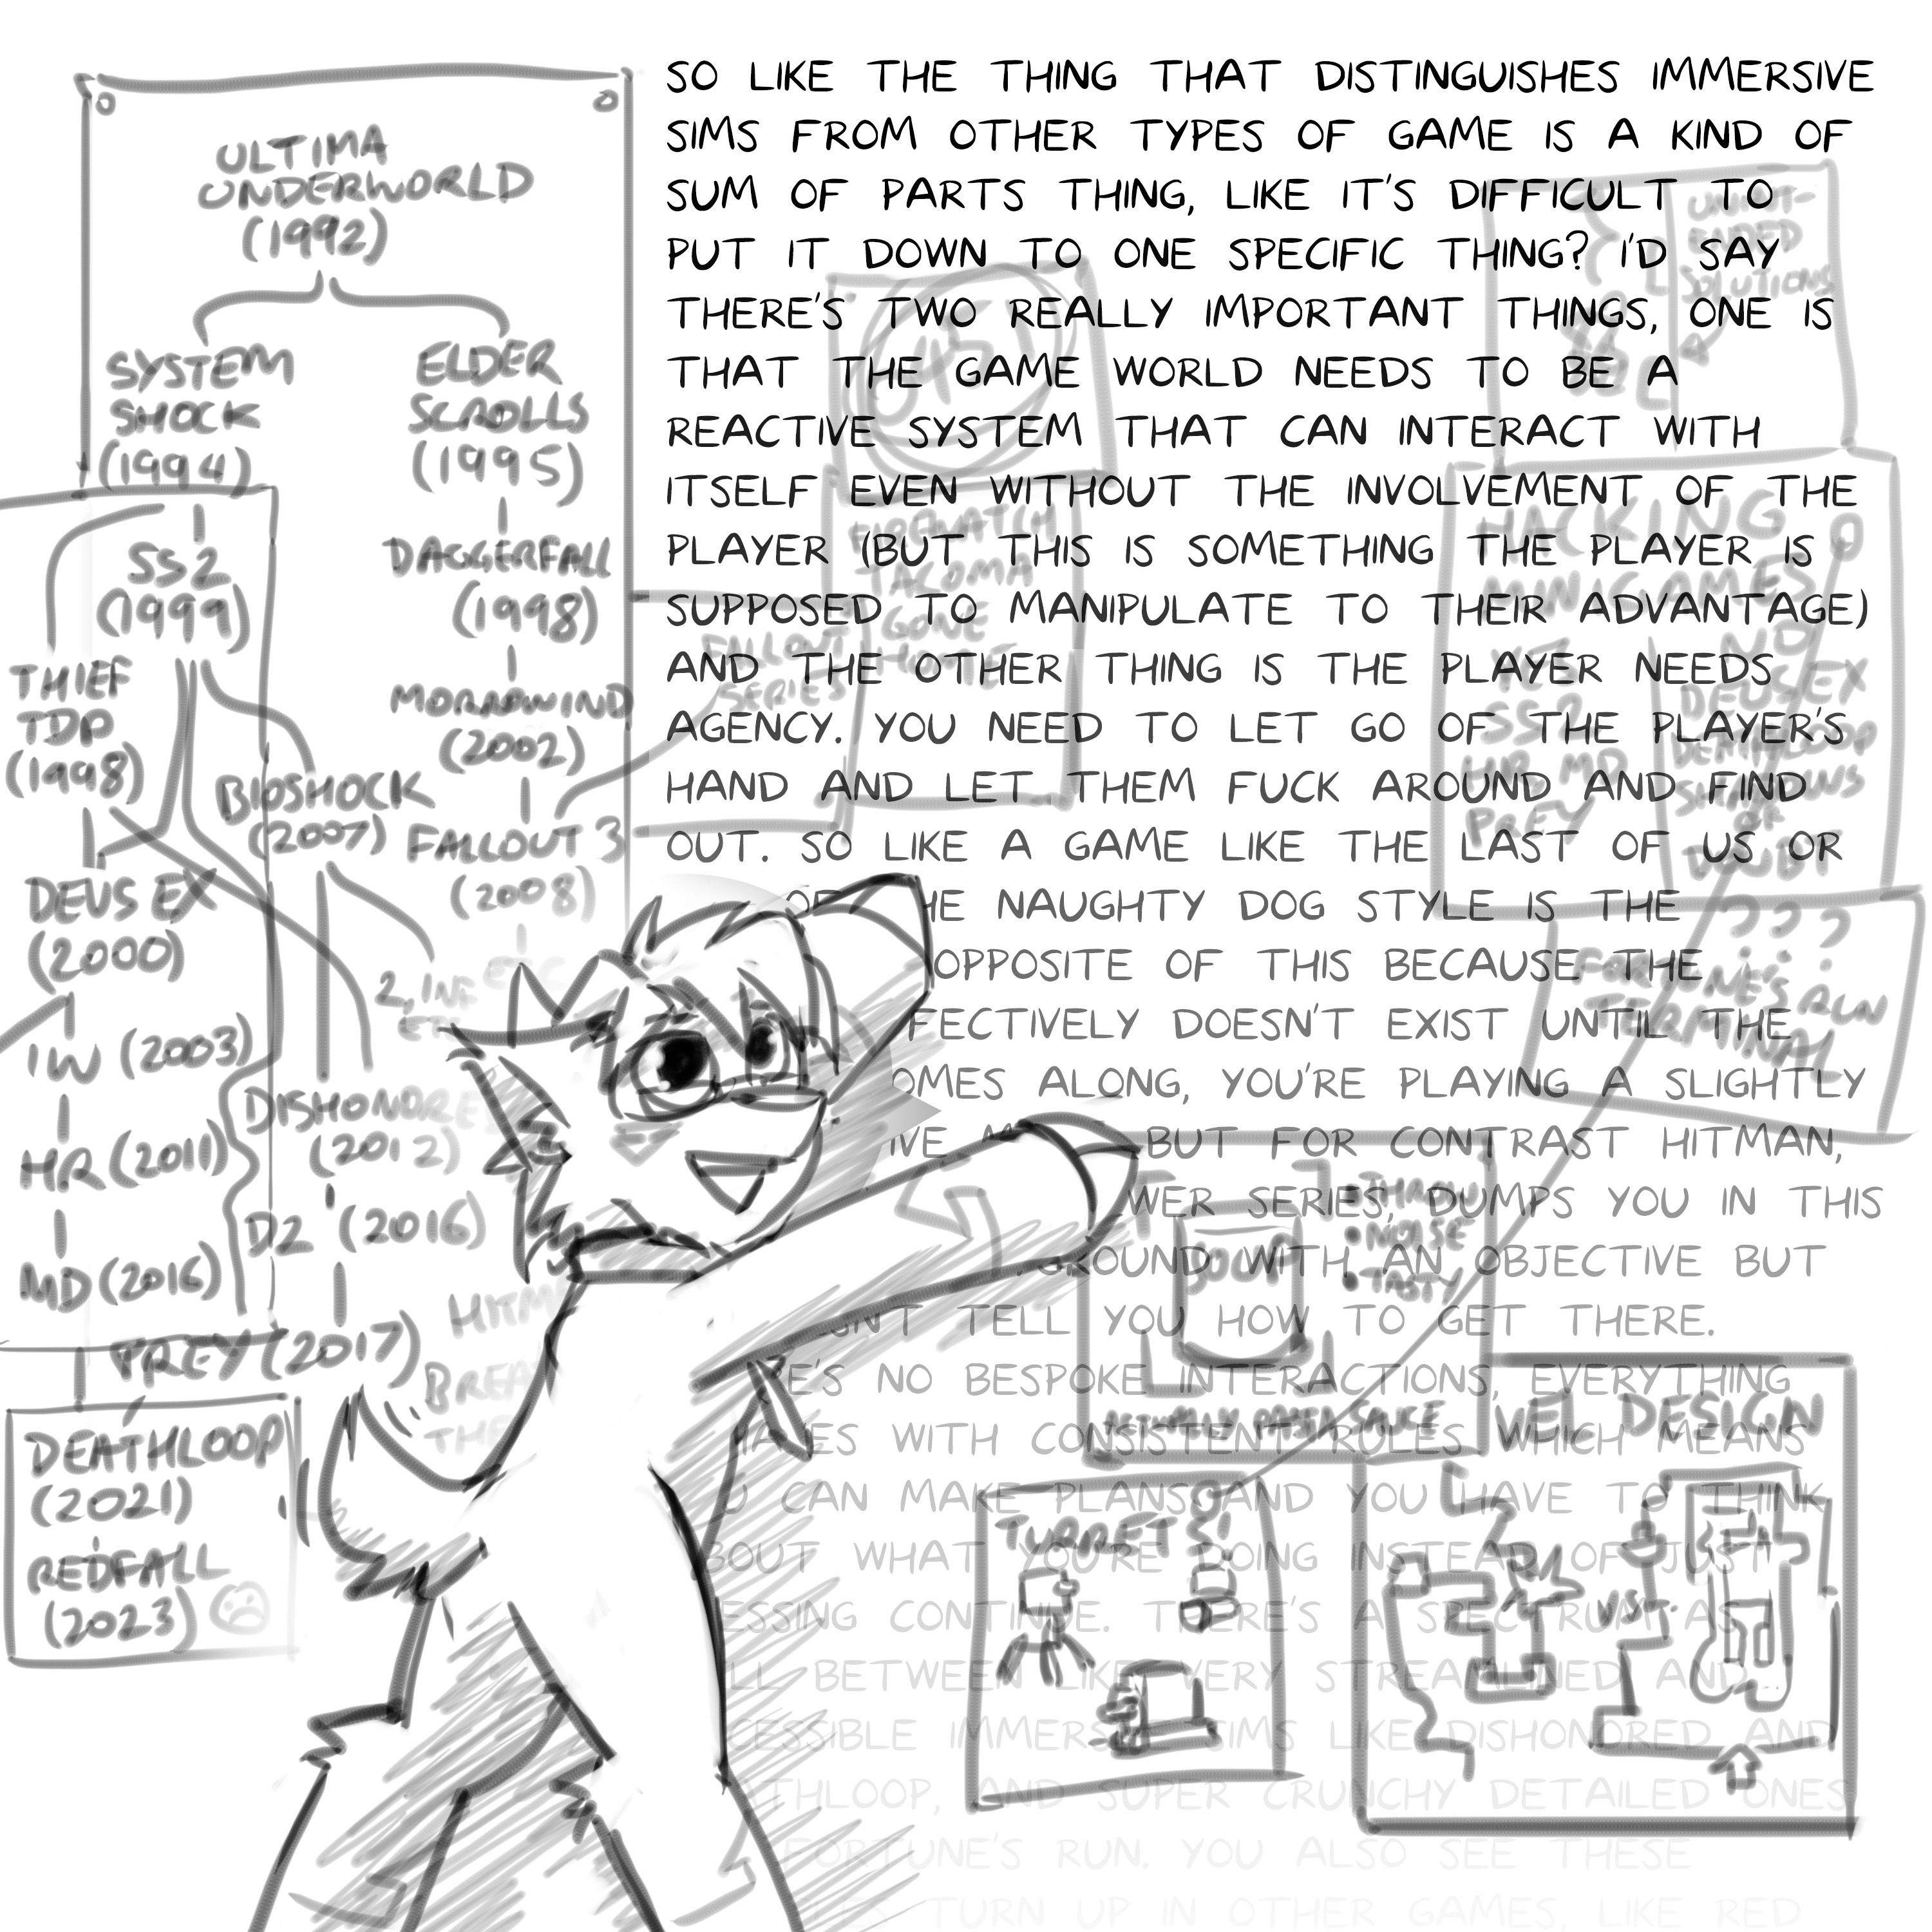 SO LIKE THE THING THAT DISTINGUISHES IMMERSIVE
SIMS FROM OTHER TYPES OF GAME IS A KIND OF
SUM OF PARTS THING, LIKE IT'S DIFFICULT TO
PUT IT DOWN TO ONE SPECIFIC THING? I'D SAY
THERE'S TWO REALLY IMPORTANT THINGS, ONE IS
THAT THE GAME WORLD NEEDS TO BE A
REACTIVE SYSTEM THAT CAN INTERACT WITH
ITSELF EVEN WITHOUT THE INVOLVEMENT OF THE
PLAYER (BUT THIS IS SOMETHING THE PLAYER IS
SUPPOSED TO MANIPULATE TO THEIR ADVANTAGE)
AND THE OTHER THING IS THE PLAYER NEEDS
AGENCY. YOU NEED TO LET GO OF THE PLAYER'S
HAND AND LET THEM FUCK AROUND AND FIND
OUT. SO LIKE A GAME LIKE THE LAST OF US OR
NAUGHTY DOG STYLE IS THE
OPPOSITE OF THIS BECAUSE THE
DOESN'T EXIST UNTIL THE
ALONG, YOU'RE PLAYING A SLIGHTLY
BUT FOR CONTRAST HITMAN,
SERIES, DUMPS YOU IN THIS
WITH AN OBJECTIVE BUT
TELL YOU HOW TO GET THERE.
NO BESPOKE INTERACTIONS, EVERYTHING
WITH CONSISTENT RULES WHICH MEANS
CAN MAKE PLANS AND YOU HAVE TO THINK
WHAT YOU'RE DOING INSTEAD OF JUST
CONTINUE. THERE'S A SPECTRUM AS
BETWEEN LIKE VERY STREAMLINED AND
SIMS LIKE DISHONORED AND
AND SUPER CRUNCHY DETAILED ONES
FORTUNE'S RUN. YOU ALSO SEE THESE
TURN UP IN OTHER GAMES, LIKE RED
ULTIMA
UNDERWORLD
(1992)
SYSTEM
SHOCK
(1994)
ELDER
SCROLLS
(1995)
SS2
(1999)
DAGGERFALL
(1998)
THIEF
TDP
(1998)
MORROWIND
(2002)
BIOSHOCK
(2007)
FALLOUT 3
(2008)
DEUS EX
(2000)
2, INF
ETC
IW (2003)
HR (2011)
MD (2016)
DISHONORE
(2012)
D2 (2016)
PREY (2017)
DEATHLOOP
(2021)
REDFALL
(2023)
FALLOUT
SERIES
FIREWATCH
TACOMA
GONE
HOME
SOLUTIONS
HACKING
MINIGAMES
YES
SS2
HR, MD
PREY
NO
DEUS EX
DEATHLOOP
SHADOWS
OF
DOUBT
???
FORTUNE'S RUN
TERMINAL
BOUM
• THROW
• NOISE
• TASTY
ACTUALLY PASTA SAUCE
TURRET
VEL DESIGN
VS.